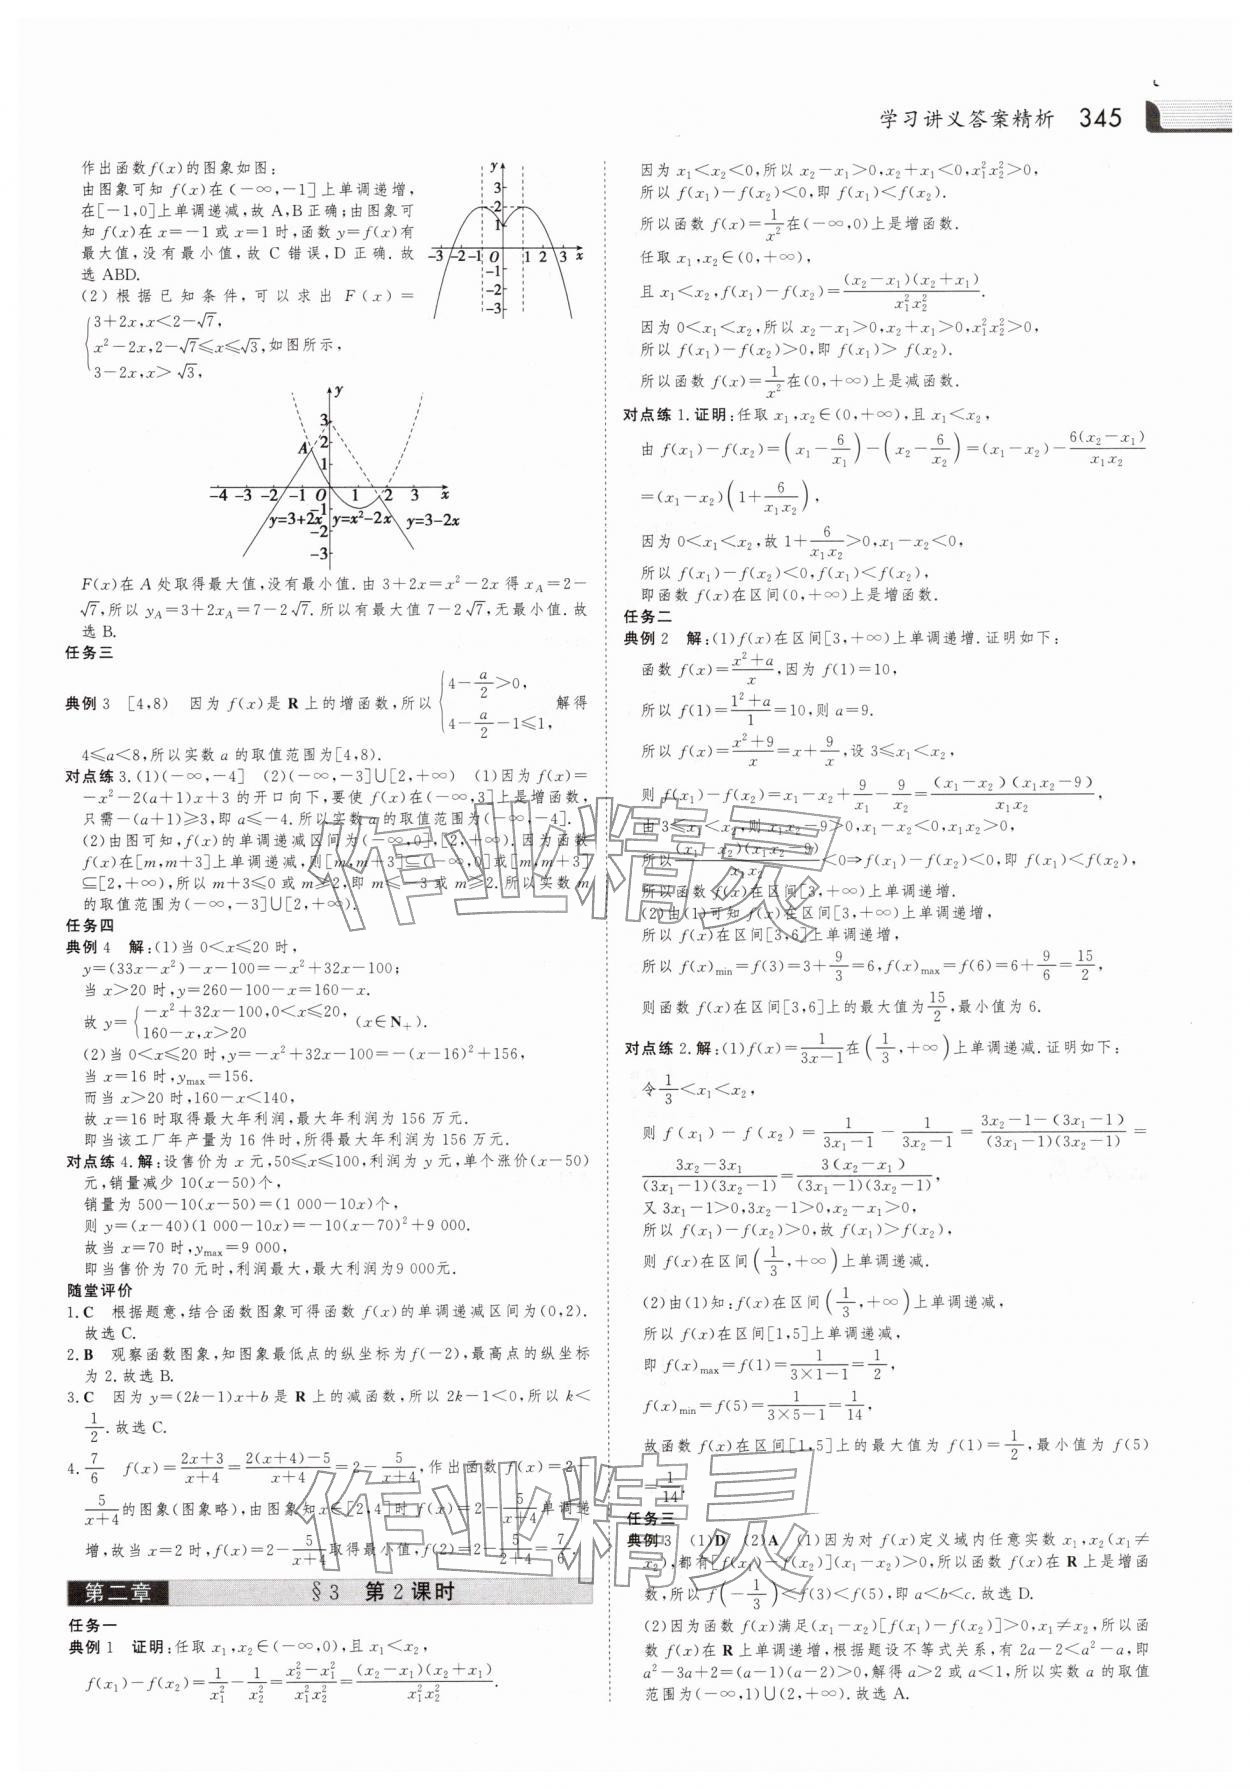 学习讲义答案精析 345
作出函数 f(x)的图象如图:
由图象可知 f(x)在(-∞,-1]上单调递增,
在[-1,0]上单调递减,故 A,B正确;由图象可
知 f(x)在 x=-1 或 x=1 时,函数 y=f(x)有
最大值,没有最小值,故 C 错误,D 正确.故
选 ABD.
y 3 2 1 -3 -2 -1 O 1 2 3 x -1 -2 -3
(2)根据已知条件,可以求出 F(x)=
{3+2x,x<2-√7,
x²-2x,2-√7≤x≤√3,如图所示,
3-2x,x>√3,
y 3 2 1 A -4 -3 -2 -1 O 1 2 3 x -1 -2 -3
y=3+2x y=x²-2x y=3-2x
F(x)在 A 处取得最大值,没有最小值.由 3+2x=x²-2x 得 x_A=2-
√7,所以 y_A=3+2x_A=7-2√7.所以有最大值 7-2√7,无最小值.故
选 B.
任务三
典例 3 [4,8) 因为 f(x)是 R 上的增函数,所以{4-a/2>0, 4-a/2-1≤1, 解得
4≤a<8,所以实数 a 的取值范围为[4,8).
对点练 3.(1)(-∞,-4] (2)(-∞,-3]∪[2,+∞) (1)因为 f(x)=
-x²-2(a+1)x+3 的开口向下,要使 f(x)在(-∞,3]上是增函数,
只需-(a+1)≥3,即 a≤-4.所以实数 a 的取值范围为(-∞,-4].
(2)由图可知,f(x)的单调递减区间为(-∞,0],[2,+∞).因为函数
f(x)在[m,m+3]上单调递减,则[m,m+3]⊆(-∞,0]或[m,m+3]
⊆[2,+∞),所以 m+3≤0 或 m≥2,即 m≤-3 或 m≥2.所以实数 m
的取值范围为(-∞,-3]∪[2,+∞).
任务四
典例 4 解:(1)当 0<x≤20 时,
y=(33x-x²)-x-100=-x²+32x-100;
当 x>20 时,y=260-100-x=160-x.
故 y={-x²+32x-100,0<x≤20, 160-x,x>20 (x∈N₊).
(2)当 0<x≤20 时,y=-x²+32x-100=-(x-16)²+156,
当 x=16 时,y_max=156.
而当 x>20 时,160-x<140,
故 x=16 时取得最大年利润,最大年利润为 156 万元.
即当该工厂年产量为 16 件时,所得最大年利润为 156 万元.
对点练 4.解:设售价为 x 元,50≤x≤100,利润为 y 元,单个涨价(x-50)
元,销量减少 10(x-50)个,
销量为 500-10(x-50)=(1 000-10x)个,
则 y=(x-40)(1 000-10x)=-10(x-70)²+9 000.
故当 x=70 时,y_max=9 000,
即当售价为 70 元时,利润最大,最大利润为9 000元.
随堂评价
1.C 根据题意,结合函数图象可得函数 f(x)的单调递减区间为(0,2).
故选 C.
2.B 观察函数图象,知图象最低点的纵坐标为 f(-2),最高点的纵坐标
为 2.故选 B.
3.C 因为 y=(2k-1)x+b 是 R 上的减函数,所以 2k-1<0,所以 k<
1/2.故选 C.
4.7/6 f(x)=(2x+3)/(x+4)=(2(x+4)-5)/(x+4)=2-5/(x+4),作出函数 f(x)=2-
5/(x+4)的图象(图象略),由图象知 x∈[2,4]时 f(x)=2-5/(x+4)单调递
增,故当 x=2 时,f(x)=2-5/(x+4)取得最小值,f(2)=2-5/(2+4)=7/6.
第二章 §3 第2课时
任务一
典例 1 证明:任取 x₁,x₂∈(-∞,0),且 x₁<x₂,
f(x₁)-f(x₂)=1/x₁²-1/x₂²=(x₂²-x₁²)/(x₁²x₂²)=(x₂-x₁)(x₂+x₁)/(x₁²x₂²).
因为 x₁<x₂<0,所以 x₂-x₁>0,x₂+x₁<0,x₁²x₂²>0,
所以 f(x₁)-f(x₂)<0,即 f(x₁)<f(x₂).
所以函数 f(x)=1/x²在(-∞,0)上是增函数.
任取 x₁,x₂∈(0,+∞),
且 x₁<x₂,f(x₁)-f(x₂)=(x₂-x₁)(x₂+x₁)/(x₁²x₂²).
因为 0<x₁<x₂,所以 x₂-x₁>0,x₂+x₁>0,x₁²x₂²>0,
所以 f(x₁)-f(x₂)>0,即 f(x₁)>f(x₂).
所以函数 f(x)=1/x²在(0,+∞)上是减函数.
对点练 1.证明:任取 x₁,x₂∈(0,+∞),且 x₁<x₂,
由 f(x₁)-f(x₂)=(x₁-6/x₁)-(x₂-6/x₂)=(x₁-x₂)-6(x₂-x₁)/(x₁x₂)
=(x₁-x₂)(1+6/(x₁x₂)),
因为 0<x₁<x₂,故 1+6/(x₁x₂)>0,x₁-x₂<0,
所以 f(x₁)-f(x₂)<0,f(x₁)<f(x₂),
即函数 f(x)在区间(0,+∞)上是增函数.
任务二
典例 2 解:(1)f(x)在区间[3,+∞)上单调递增.证明如下:
函数 f(x)=(x²+a)/x,因为 f(1)=10,
所以 f(1)=(1²+a)/1=10,则 a=9.
所以 f(x)=(x²+9)/x=x+9/x,设 3≤x₁<x₂,
则 f(x₁)-f(x₂)=x₁-x₂+9/x₁-9/x₂=(x₁-x₂)(x₁x₂-9)/(x₁x₂),
由 3≤x₁<x₂,则 x₁x₂-9>0,x₁-x₂<0,x₁x₂>0,
所以(x₁-x₂)(x₁x₂-9)/(x₁x₂)<0⇒f(x₁)-f(x₂)<0,即 f(x₁)<f(x₂),
所以函数 f(x)在区间[3,+∞)上单调递增.
(2)由(1)可知 f(x)在区间[3,+∞)上单调递增,
所以 f(x)在区间[3,6]上单调递增,
所以 f(x)_min=f(3)=3+9/3=6,f(x)_max=f(6)=6+9/6=15/2,
则函数 f(x)在区间[3,6]上的最大值为15/2,最小值为 6.
对点练 2.解:(1)f(x)=1/(3x-1)在(1/3,+∞)上单调递减.证明如下:
令1/3<x₁<x₂,
则 f(x₁)-f(x₂)=1/(3x₁-1)-1/(3x₂-1)=(3x₂-1-(3x₁-1))/((3x₁-1)(3x₂-1))=
(3x₂-3x₁)/((3x₁-1)(3x₂-1))=3(x₂-x₁)/((3x₁-1)(3x₂-1)),
又 3x₁-1>0,3x₂-1>0,x₂-x₁>0,
所以 f(x₁)-f(x₂)>0,故 f(x₁)>f(x₂),
则 f(x)在区间(1/3,+∞)上单调递减.
(2)由(1)知:f(x)在区间(1/3,+∞)上单调递减,
所以 f(x)在区间[1,5]上单调递减,
即 f(x)_max=f(1)=1/(3×1-1)=1/2,
f(x)_min=f(5)=1/(3×5-1)=1/14,
故函数 f(x)在区间[1,5]上的最大值为 f(1)=1/2,最小值为 f(5)
=1/14.
任务三
典例 3 (1)D (2)A (1)因为对 f(x)定义域内任意实数 x₁,x₂(x₁≠
x₂),都有[f(x₁)-f(x₂)](x₁-x₂)>0,所以函数 f(x)在 R 上是增函
数,所以 f(-1/3)<f(3)<f(5),即 a<b<c.故选 D.
(2)因为函数 f(x)满足(x₁-x₂)[f(x₁)-f(x₂)]>0,x₁≠x₂,所以函
数 f(x)在 R 上单调递增,根据题设不等式关系,有 2a-2<a²-a,即
a²-3a+2=(a-1)(a-2)>0,解得 a>2 或 a<1,所以实数 a 的取值
范围为(-∞,1)∪(2,+∞).故选 A.
作业精灵
作业精灵